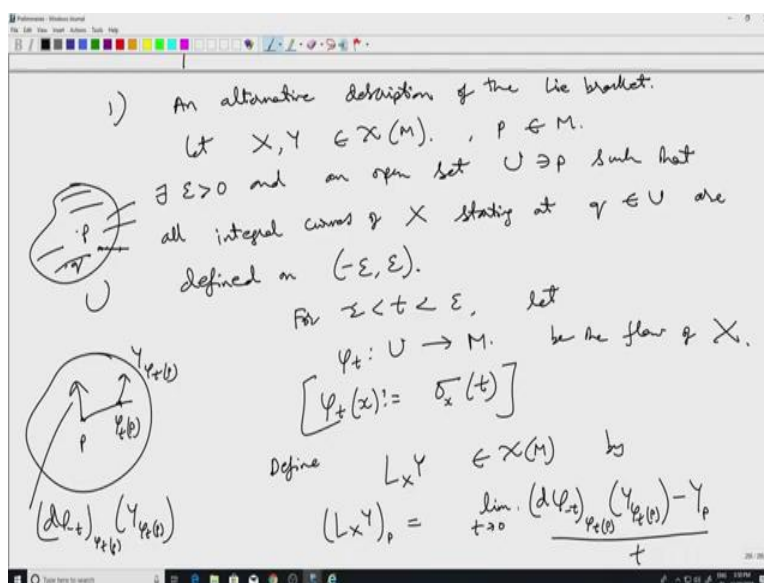 Preliminaries - Windows Journal
File Edit View Insert Actions Tools Help
1) An alternative description of the Lie bracket.
Let X, Y ∈ 𝔛(M). , p ∈ M.
∃ ε>0 and an open set U ∋ p such that
all integral curves of X starting at q ∈ U are
defined on (-ε, ε).
·p
q
U
For -ε < t < ε, let
φ_t : U → M. be the flow of X.
[φ_t(x) := σ_x(t)]
Y_{φ_t(p)}
p
φ_t(p)
(dφ_{-t})_{φ_t(p)} (Y_{φ_t(p)})
Define L_X Y ∈ 𝔛(M) by
(L_X Y)_p = lim_{t→0} ((dφ_{-t})_{φ_t(p)} (Y_{φ_t(p)}) - Y_p) / t
Type here to search